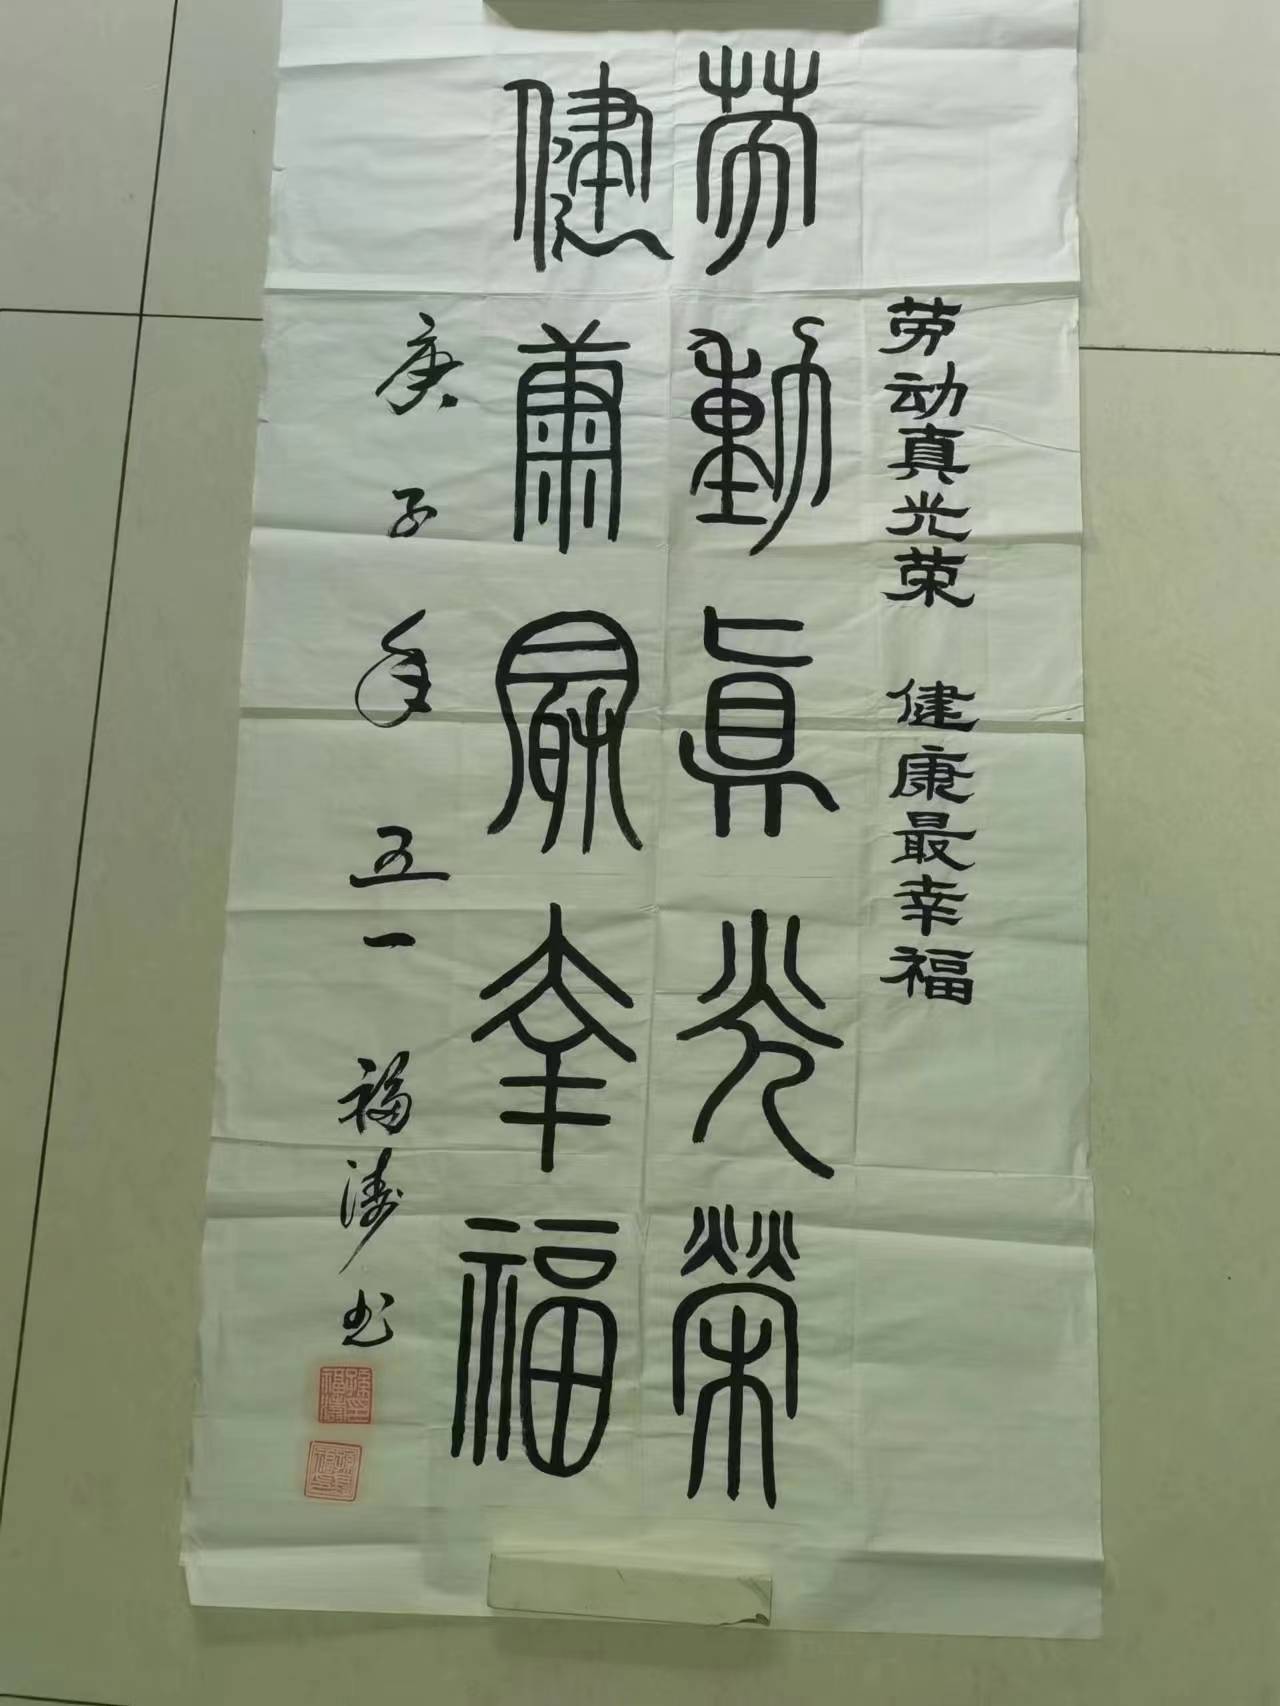 劳动真光荣 健康最幸福
劳動真光榮
健康最幸福
庚子年五一 福涛书